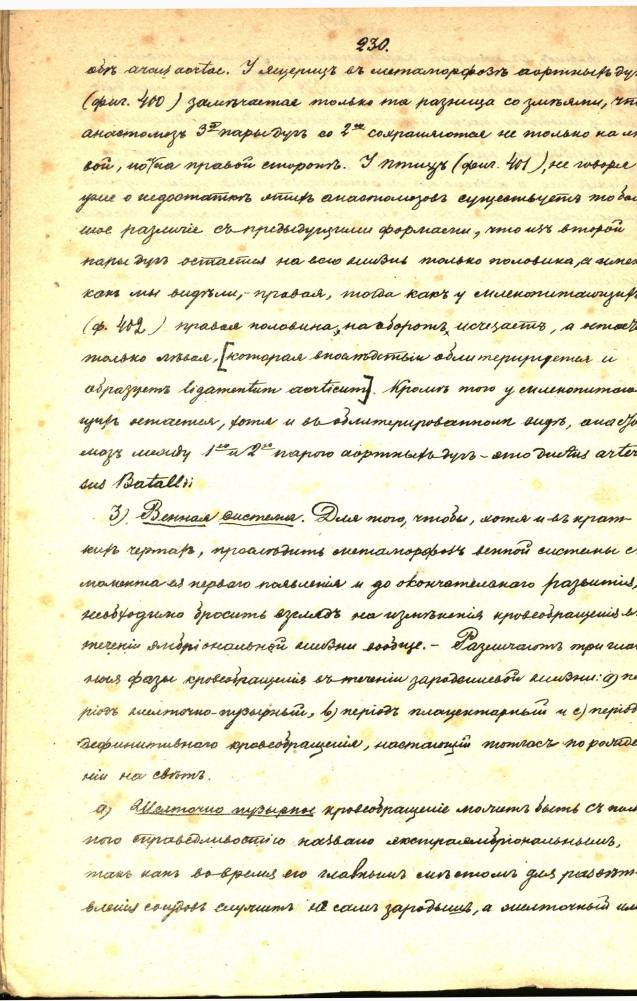 230.
объ arcus aortae. У ящерицъ въ метаморфозѣ аортныхъ ду
(фиг. 400) замѣчается только та разница со змѣями, чт
анастомозъ 3ей пары дугъ со 2ою сохраняются не только на лѣ
вой, но и на правой сторонѣ. У птицъ (фиг. 401), не говоря
уже о недостаткѣ этихъ анастомозовъ существуетъ то бол
шое различіе съ предыдущими формами, что изъ второй
пары дугъ остается на всю жизнь только половина, а имен
какъ мы видѣли, - правая, тогда какъ у млекопитающихъ
(ф. 402) правая половина, на оборотъ, исчезаетъ, а остает
только лѣвая, [которая впослѣдствіи облитерируется и
образуетъ ligamentum aorticum]. Кромѣ того у млекопитаю-
щихъ остается, хотя и въ облитерированномъ видѣ, анасто
мозъ между 1ою и 2ою парою аортныхъ дугъ - это ductus arter
sus Batalli
3) Венная система. Для того, чтобы, хотя и въ крат-
кихъ чертахъ, прослѣдить метаморфозъ венной системы с
момента ея перваго появленія и до окончательнаго развитія,
необходимо бросить взглядъ на измѣненія кровеобращенія въ
теченіи эмбріональной жизни вообще. - Различаютъ три глав
ныя фазы кровеобращенія въ теченіи зародышевой жизни: а) пе
ріодъ желточно-пузырный, b) періодъ плацентарный и c) періодъ
дефинитивнаго кровеобращенія, настающій тотчасъ по рожде
ніи на свѣтъ.
а) Желточно пузырное кровеобращеніе можетъ быть съ пол
ною справедливостію названо экстраэмбріональнымъ,
такъ какъ во время его главнымъ мѣстомъ для развѣт-
вленія сосудовъ служитъ не самъ зародышъ, а желточный или